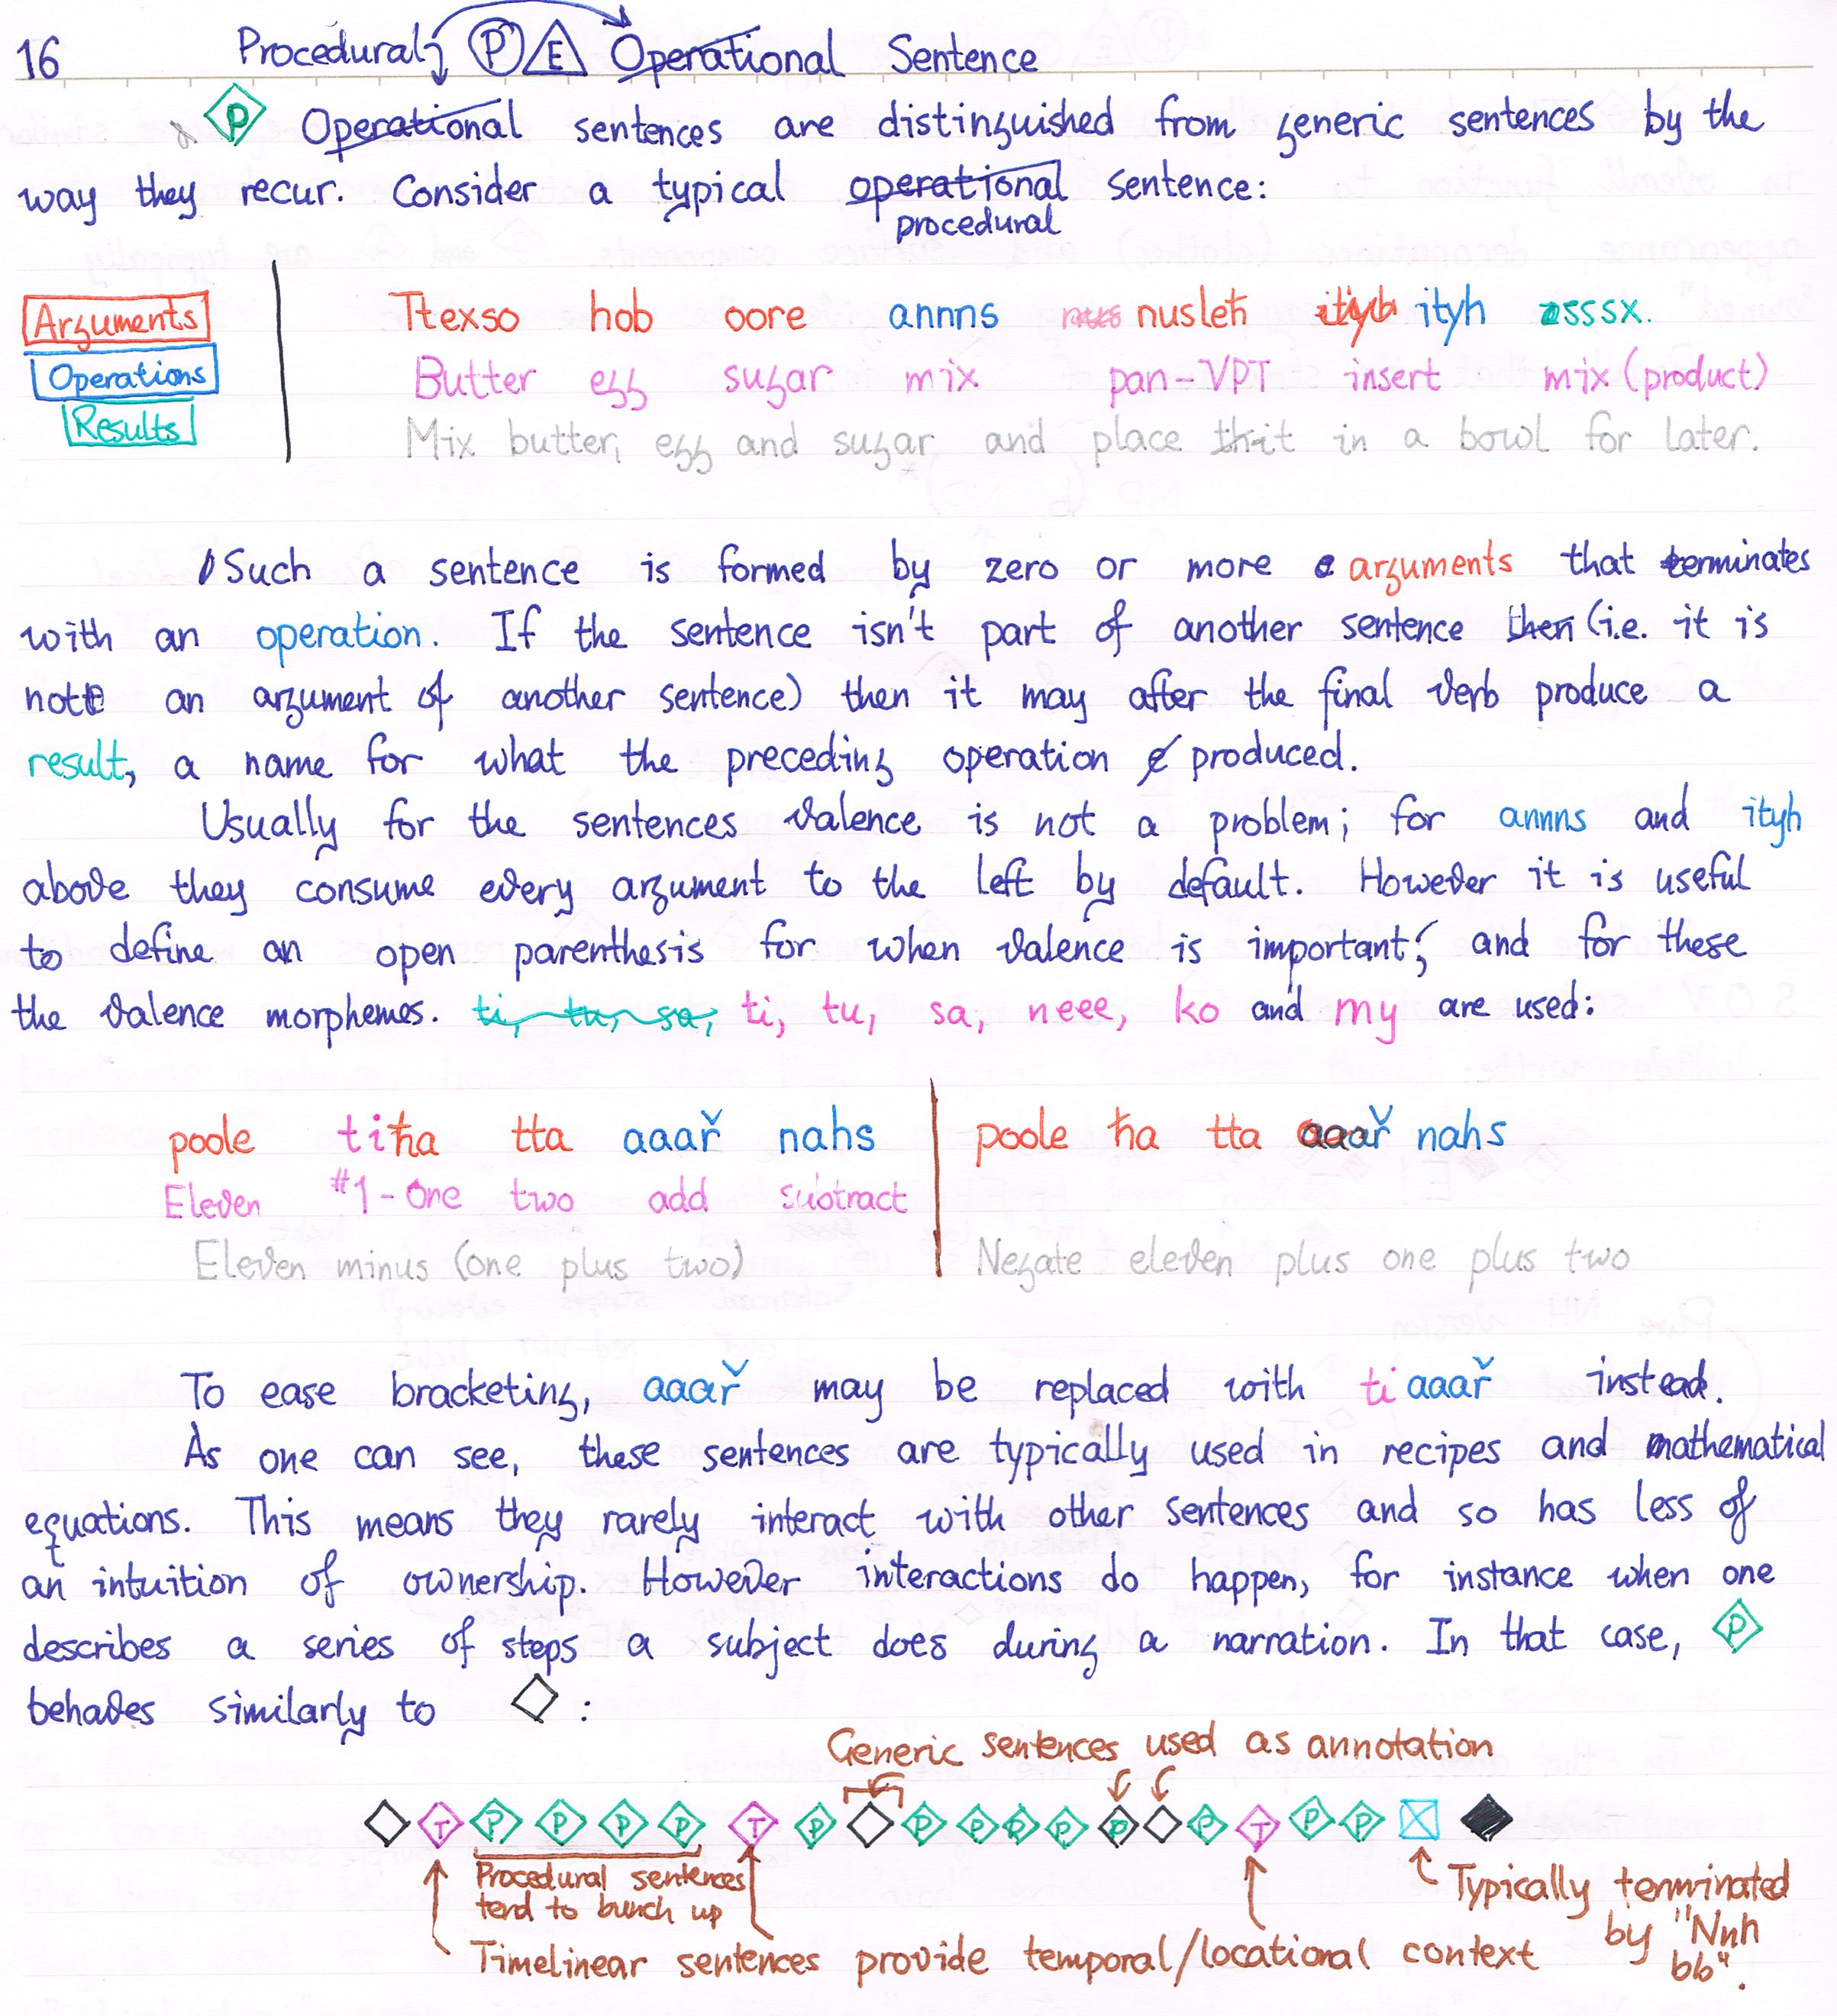 16 Procedural P E Operational Sentence
P Operational sentences are distinguished from generic sentences by the
way they recur. Consider a typical operational sentence:
procedural
Arguments
Operations
Results
Ŧtexso hob oore annns nusleħ ityh ityh sssx.
Butter egg sugar mix pan-VPT insert mix (product)
Mix butter, egg and sugar and place it in a bowl for later.
Such a sentence is formed by zero or more arguments that terminates
with an operation. If the sentence isn't part of another sentence then (i.e. it is
not an argument of another sentence) then it may after the final verb produce a
result, a name for what the preceding operation produced.
Usually for the sentences valence is not a problem; for annns and ityh
above they consume every argument to the left by default. However it is useful
to define an open parenthesis for when valence is important; and for these
the valence morphemes. ti, tu, sa, ti, tu, sa, neee, ko and my are used:
poole tiħa tta aaař nahs
Eleven #1-One two add subtract
Eleven minus (one plus two)
poole ħa tta aaař nahs
Negate eleven plus one plus two
To ease bracketing, aaař may be replaced with tiaaař instead.
As one can see, these sentences are typically used in recipes and mathematical
equations. This means they rarely interact with other sentences and so has less of
an intuition of ownership. However interactions do happen, for instance when one
describes a series of steps a subject does during a narration. In that case, P
behaves similarly to :
Generic sentences used as annotation
T P P P P T P P P P P P P T P P
Procedural sentences
tend to bunch up
Timelinear sentences provide temporal/locational context
Typically terminated
by "Nnh
bb".